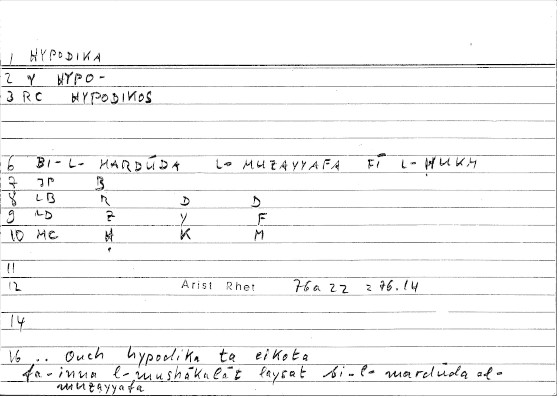 1 HYPODIKA
2 Y HYPO-
3 RC HYPODIKOS
6 BI-L-MARDŪDA L-MUZAYYAFA FĪ L-ḤUKM
7 JP B
8 LB R D D
9 LD Z Y F
10 MC Ḥ K M
11
12 Arist Rhet 76a 22 = 76.14
14
16 .. Ouch hypodika ta eikota
fa-inna l-mushākalāt laysat bi-l-mardūda al-
muzayyafa